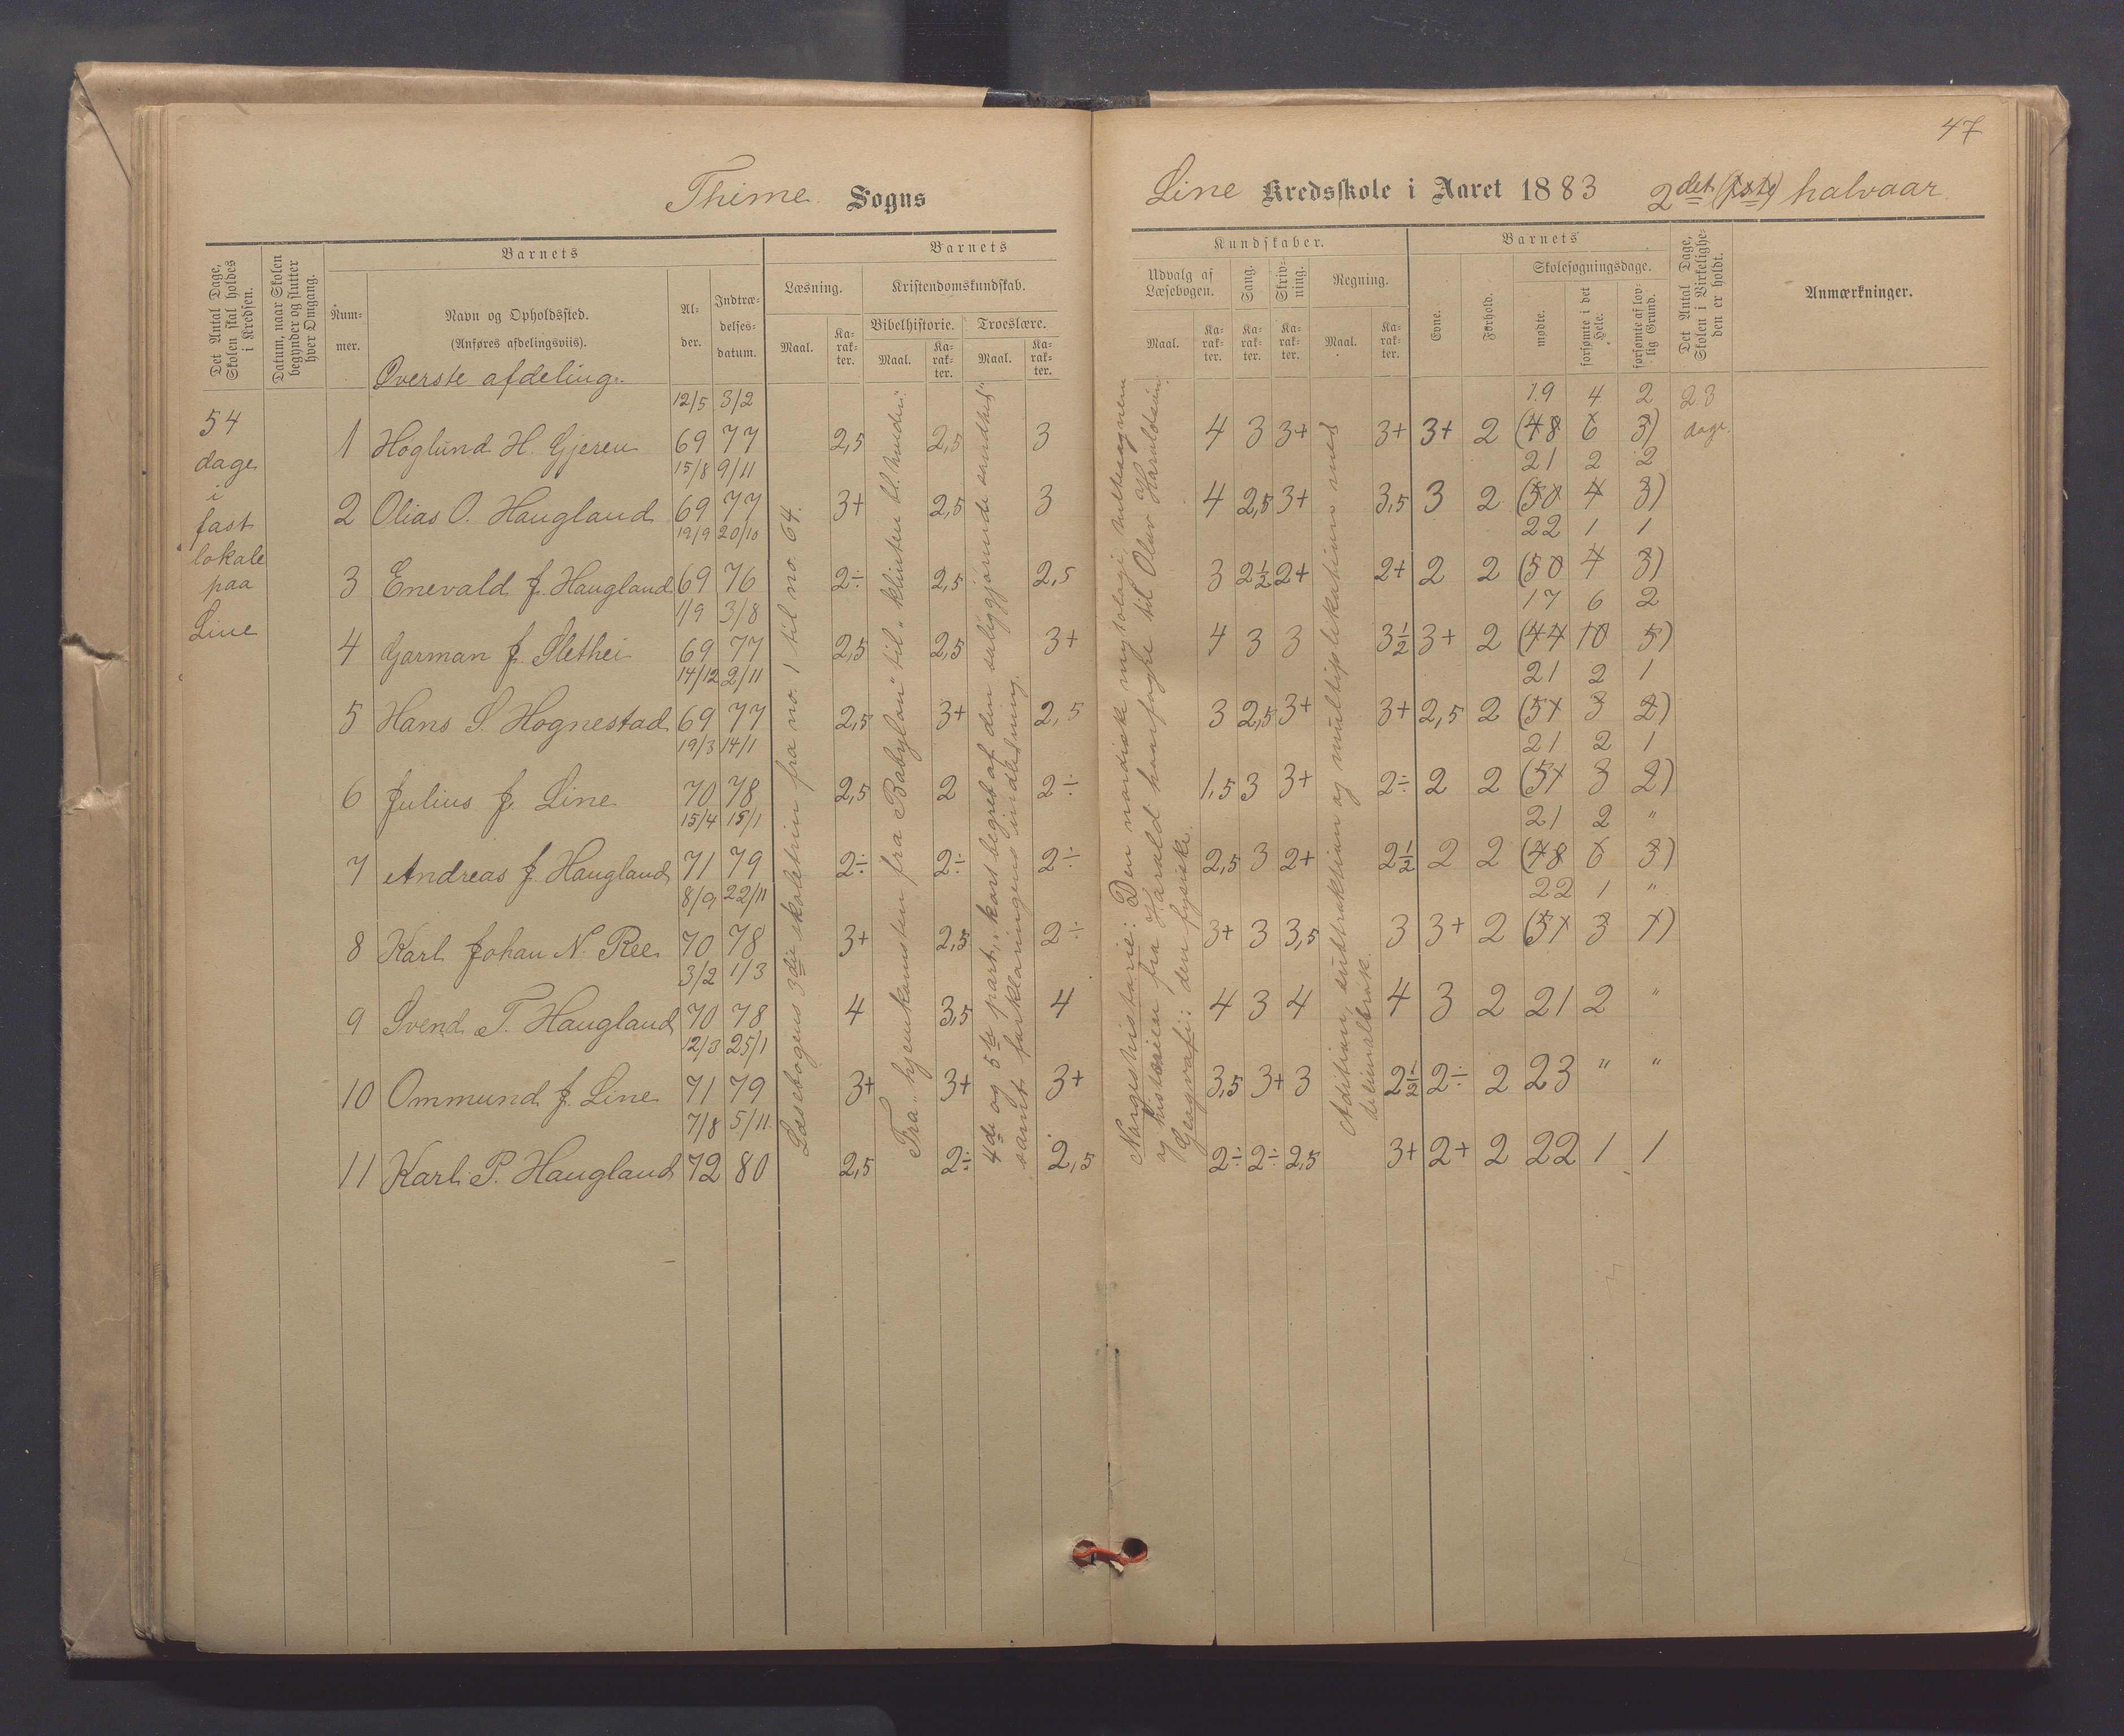 47
Thime Sogns Line Kredsskole i Aaret 1883 2det (1ste) halvaar
Det Antal Dage, Skolen skal holdes i Kredsen.
Datum, naar Skolen begynder og slutter hver Omgang.
Barnets
Nummer.
Navn og Opholdssted.
(Anføres afdelingsviis).
Alder.
Indtrædelses-datum.
Barnets
Læsning.
Maal.
Karakter.
Kristendomskundskab.
Bibelhistorie.
Maal.
Karakter.
Troeslære.
Maal.
Karakter.
Kundskaber.
Udvalg af Læsebogen.
Maal.
Karakter.
Sang.
Karakter.
Skrivning.
Karakter.
Regning.
Maal.
Karakter.
Barnets
Evne.
Forhold.
Skolesøgningsdage.
mødte.
forsømte i det Hele.
forsømte af lovlig Grund.
Det Antal Dage, Skolen i Virkeligheden er holdt.
Anmærkninger.
Øverste afdeling.
54
dage
i
fast
lokale
paa
Line
12/5 3/2 19 4 2 23
1 Hoglund H. Gjeren 69 77 2,5 2,5 3 4 3 3+ 3+ 3+ 2 (48 6 3) dage.
15/8 9/11 21 2 2
2 Olias O. Haugland 69 77 3+ 2,5 3 4 2,5 3+ 3,5 3 2 (50 4 3)
19/9 20/10 22 1 1
3 Enevald J. Haugland 69 76 2÷ 2,5 2,5 3 2½ 2+ 2+ 2 2 (50 4 3)
1/9 3/8 17 6 2
4 Garman J. Slethei 69 77 2,5 2,5 3+ 4 3 3 3½ 3+ 2 (44 10 5)
14/12 2/11 21 2 1
5 Hans S. Hognestad 69 77 2,5 3+ 2,5 3 2,5 3+ 3+ 2,5 2 (51 3 2)
19/3 14/1 21 2 1
6 Julius J. Line 70 78 2,5 2 2÷ 1,5 3 3+ 2÷ 2 2 (51 3 2)
15/4 15/1 21 2 "
7 Andreas J. Haugland 71 79 2÷ 2÷ 2÷ 2,5 3 2+ 2½ 2 2 (48 6 3)
8/9 22/11 22 1 "
8 Karl Johan N. Ree 70 78 3+ 2,5 2÷ 3+ 3 3,5 3 3+ 2 (51 3 1)
3/2 1/3
9 Svend T. Haugland 70 78 4 3,5 4 4 3 4 4 3 2 21 2 "
12/3 25/1
10 Ommund J. Line 71 79 3+ 3+ 3+ 3,5 3+ 3 2½ 2÷ 2 23 " "
7/8 5/11
11 Karl P. Haugland 72 80 2,5 2÷ 2,5 2÷ 2÷ 2,5 3+ 2+ 2 22 1 1
Læsebogens 3die skoletrin fra no. 1 til no. 64.
Fra "hjemkomsten fra Babylon" til "klinten bl. hveden".
4de og 5te part, "kort begreb af den saliggjørende sandhed"
samt forklaringens indledning.
Norgeshistorie: Den nordiske mytologi, heltesagnene
og historien fra Harald haarfagre til Olav Haraldsøn.
Geografi: den fysiske.
Addition, subtraktion og multiplikation med
desimalbrøk.